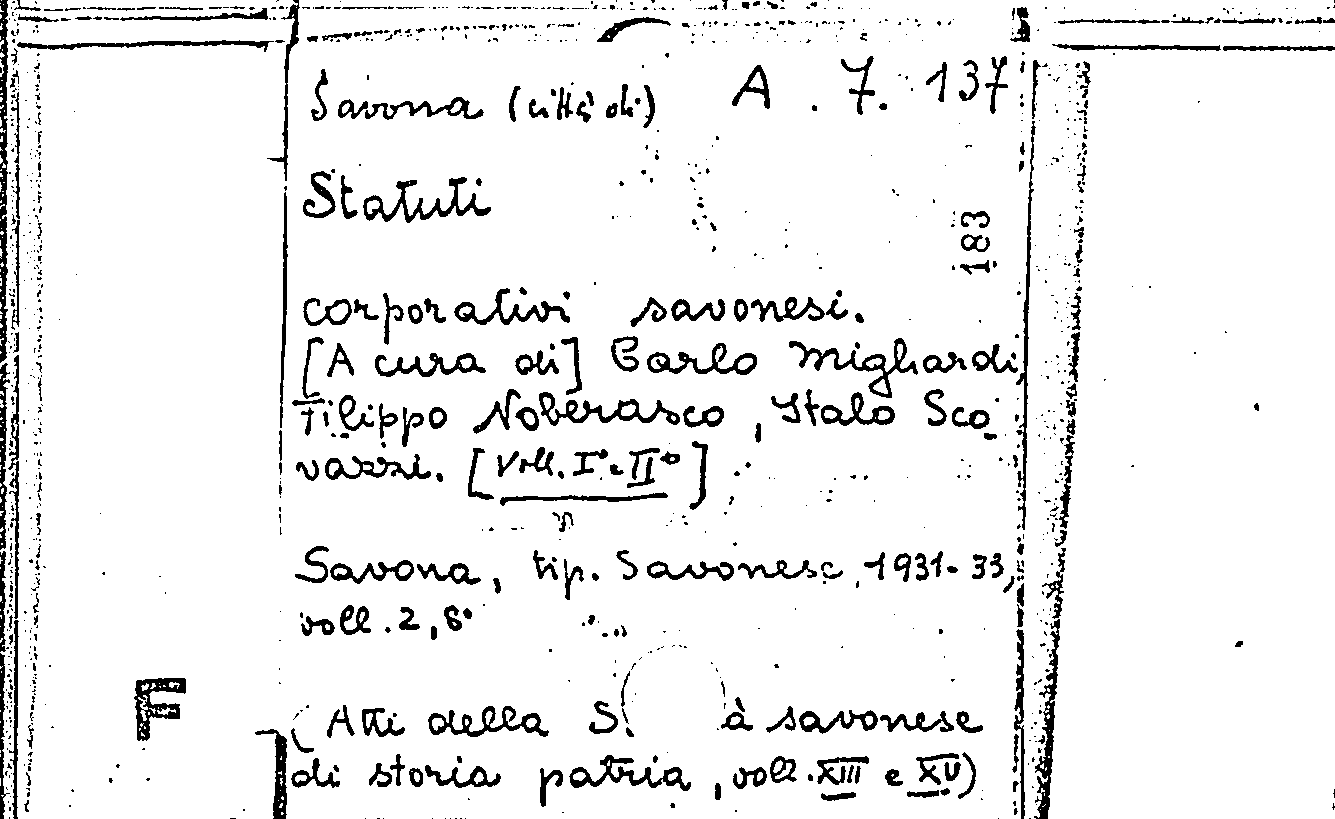 Savona (città di) A. 7. 137
Statuti
183
corporativi savonesi.
[A cura di] Carlo Migliardi,
Filippo Noberasco, Italo Sco-
vazzi. [Voll. I° e II°]
Savona, tip. Savonese, 1931-33,
voll. 2, 8°
F
(Atti della S. à savonese
di storia patria, voll. XIII e XV)